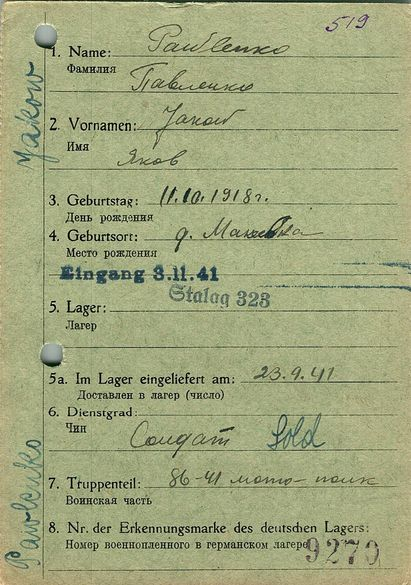 519
1. Name: Pawlenko
Фамилия
Павленко
2. Vornamen: Jakow
Имя
Яков
3. Geburtstag: 11.10.1918г.
День рождения
4. Geburtsort: д. Макеевка
Место рождения
Eingang 3.11.41
Stalag 323
5. Lager:
Лагер
5a. Im Lager eingeliefert am: 23.9.41
Доставлен в лагер (число)
6. Dienstgrad:
Чин
Солдат Sold
7. Truppenteil: 86-41 мото-полк
Воинская часть
8. Nr. der Erkennungsmarke des deutschen Lagers:
Номер военнопленного в германском лагере
9270
Pawlenko Jakow